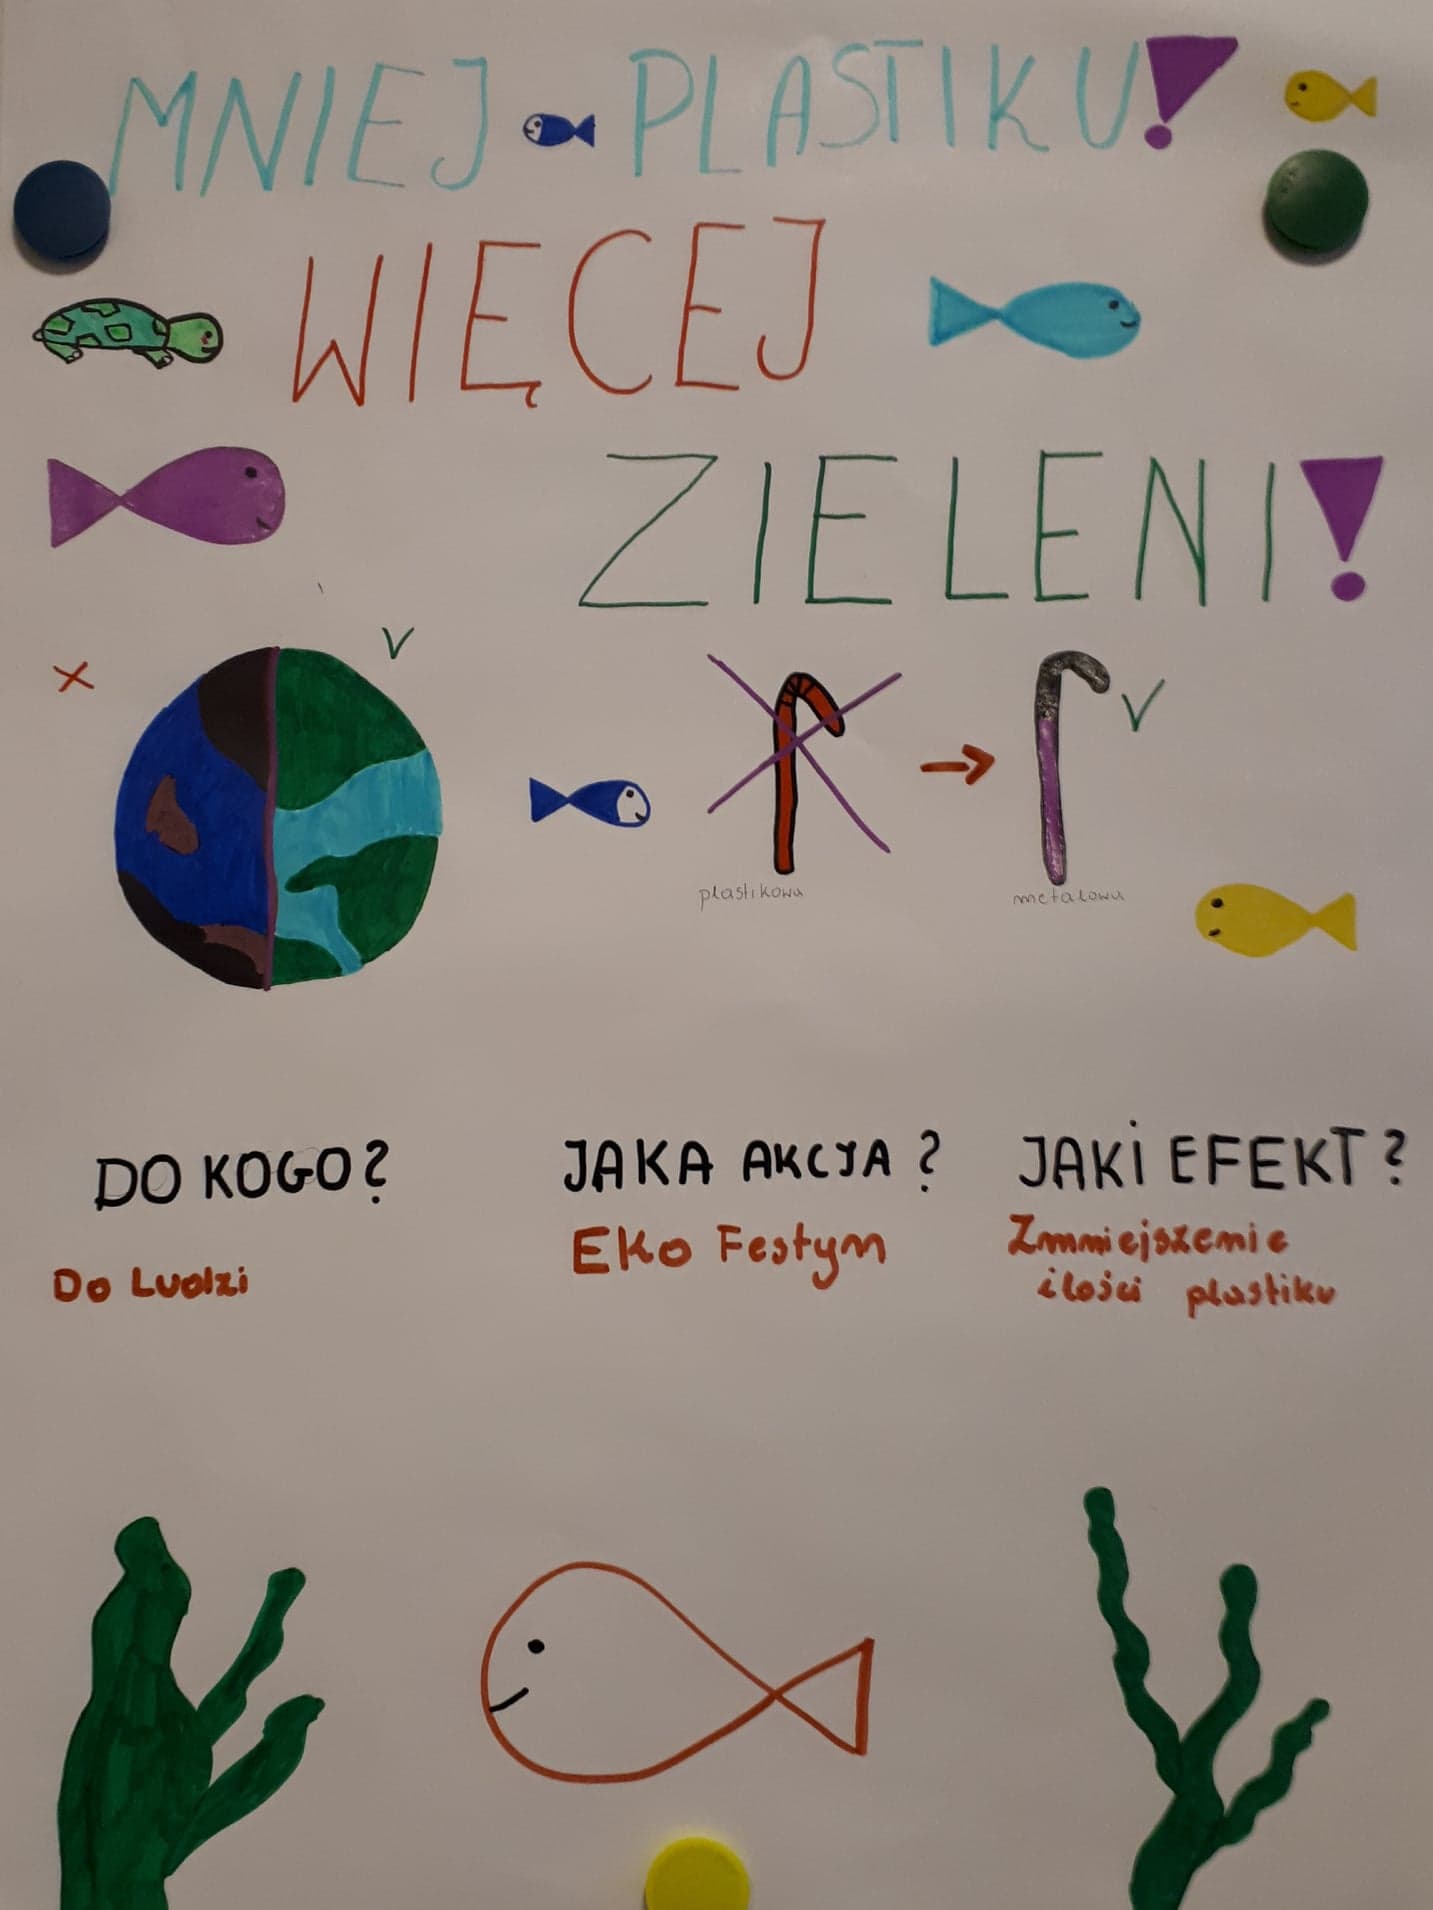 MNIEJ PLASTIKU!
WIĘCEJ
ZIELENI!
plastikowa
metalowa
DO KOGO?
Do Ludzi
JAKA AKCJA?
Eko Festyn
JAKI EFEKT?
Zmniejszenie
ilości plastiku